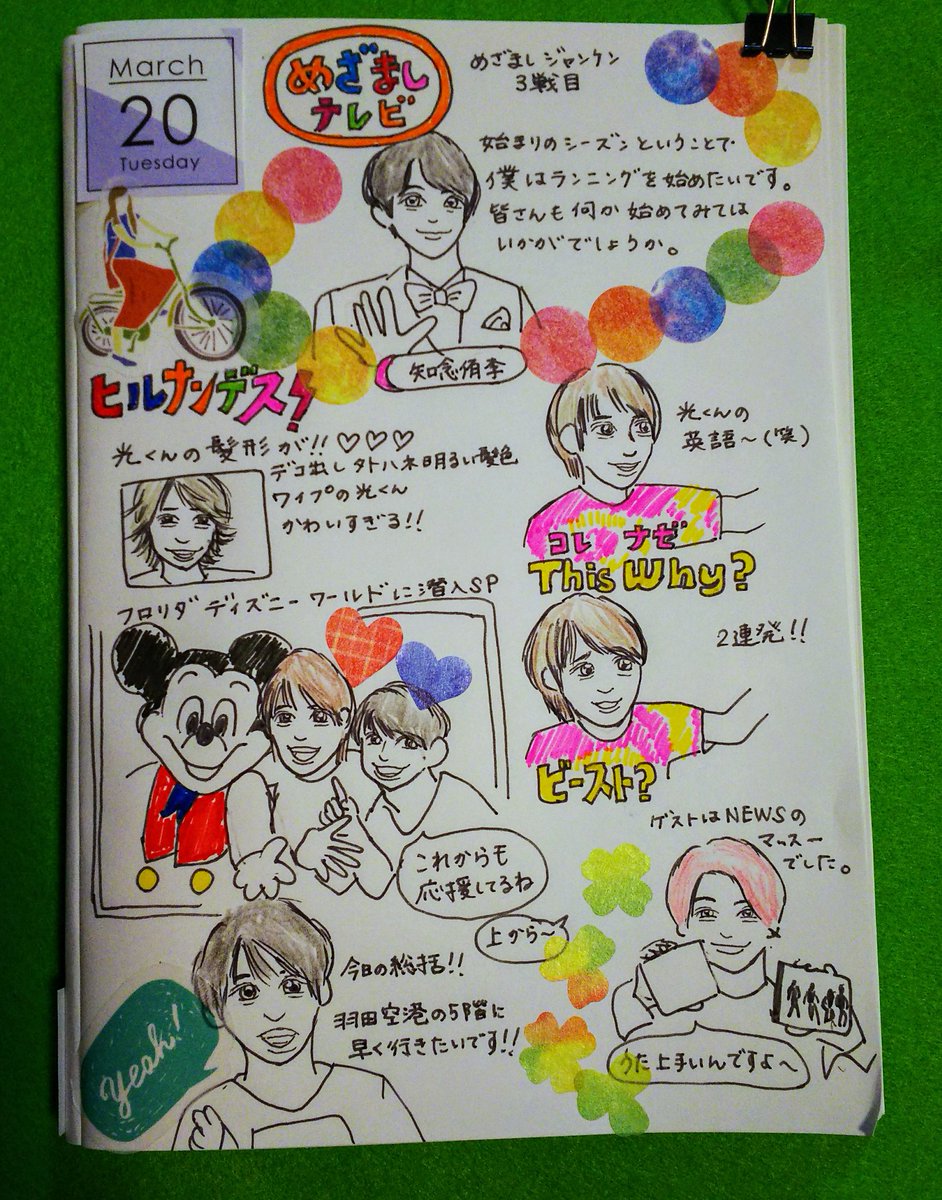 March
20
Tuesday
めざまし
テレビ
めざましジャンケン
3戦目
始まりのシーズンということで
僕はランニングを始めたいです。
皆さんも何か始めてみては
いかがでしょうか。
知念侑李
ヒルナンデス!
光くんの髪形が!!♡♡♡
デコ出しタトハネ明るい髪色
ワイプの光くん
かわいすぎる!!
光くんの
英語~(笑)
コレ ナゼ
This Why?
フロリダディズニーワールドに潜入SP
2連発!!
ビースト?
これからも
応援してるね
ゲストはNEWSの
マッスー
でした。
上から~
うた上手いんですよ~
今日の総括!!
羽田空港の5階に
早く行きたいです!!
yeah!